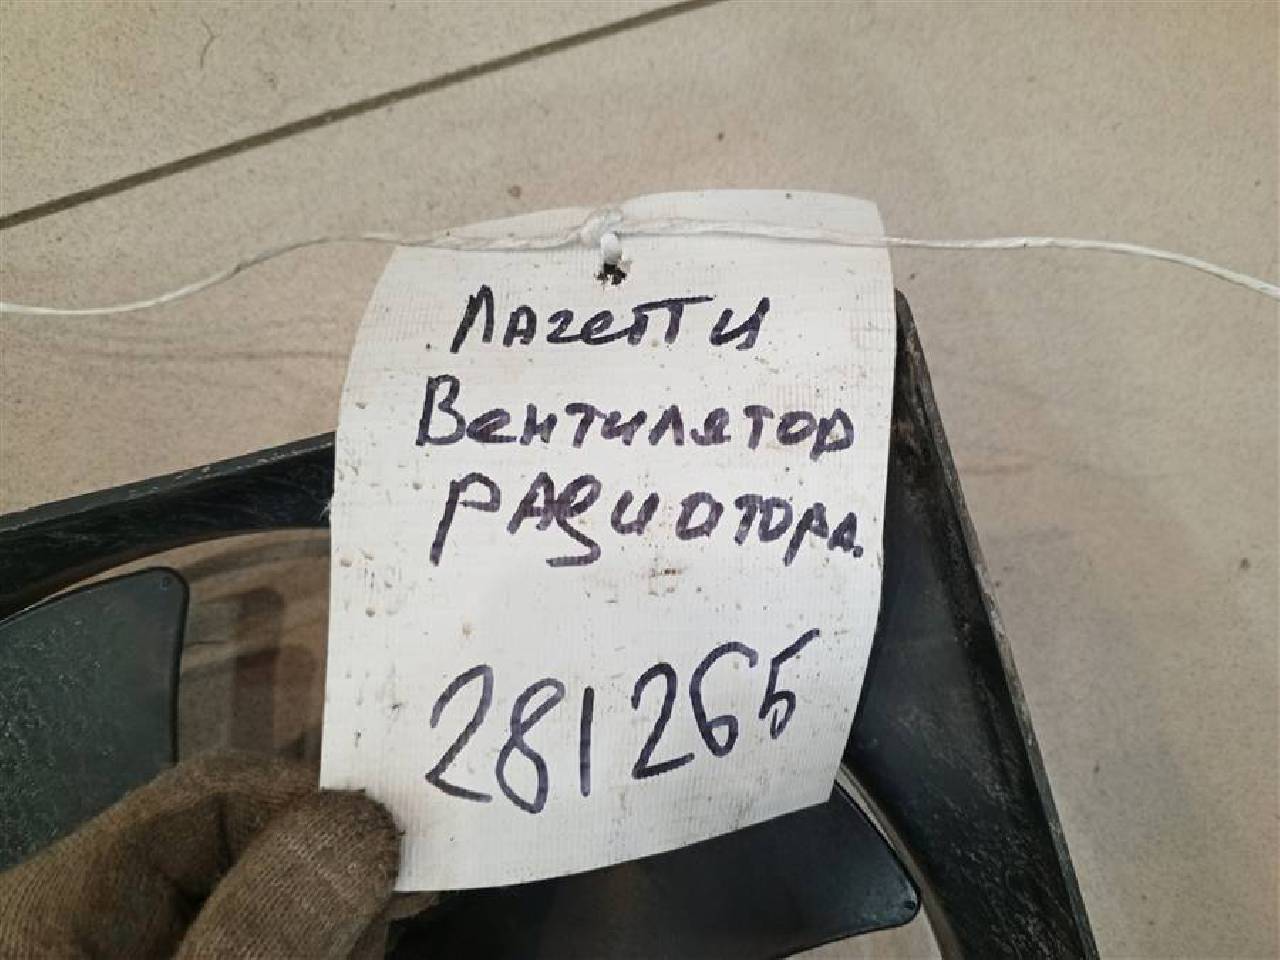 Лагетти
Вентилятор
радиатора.
281265